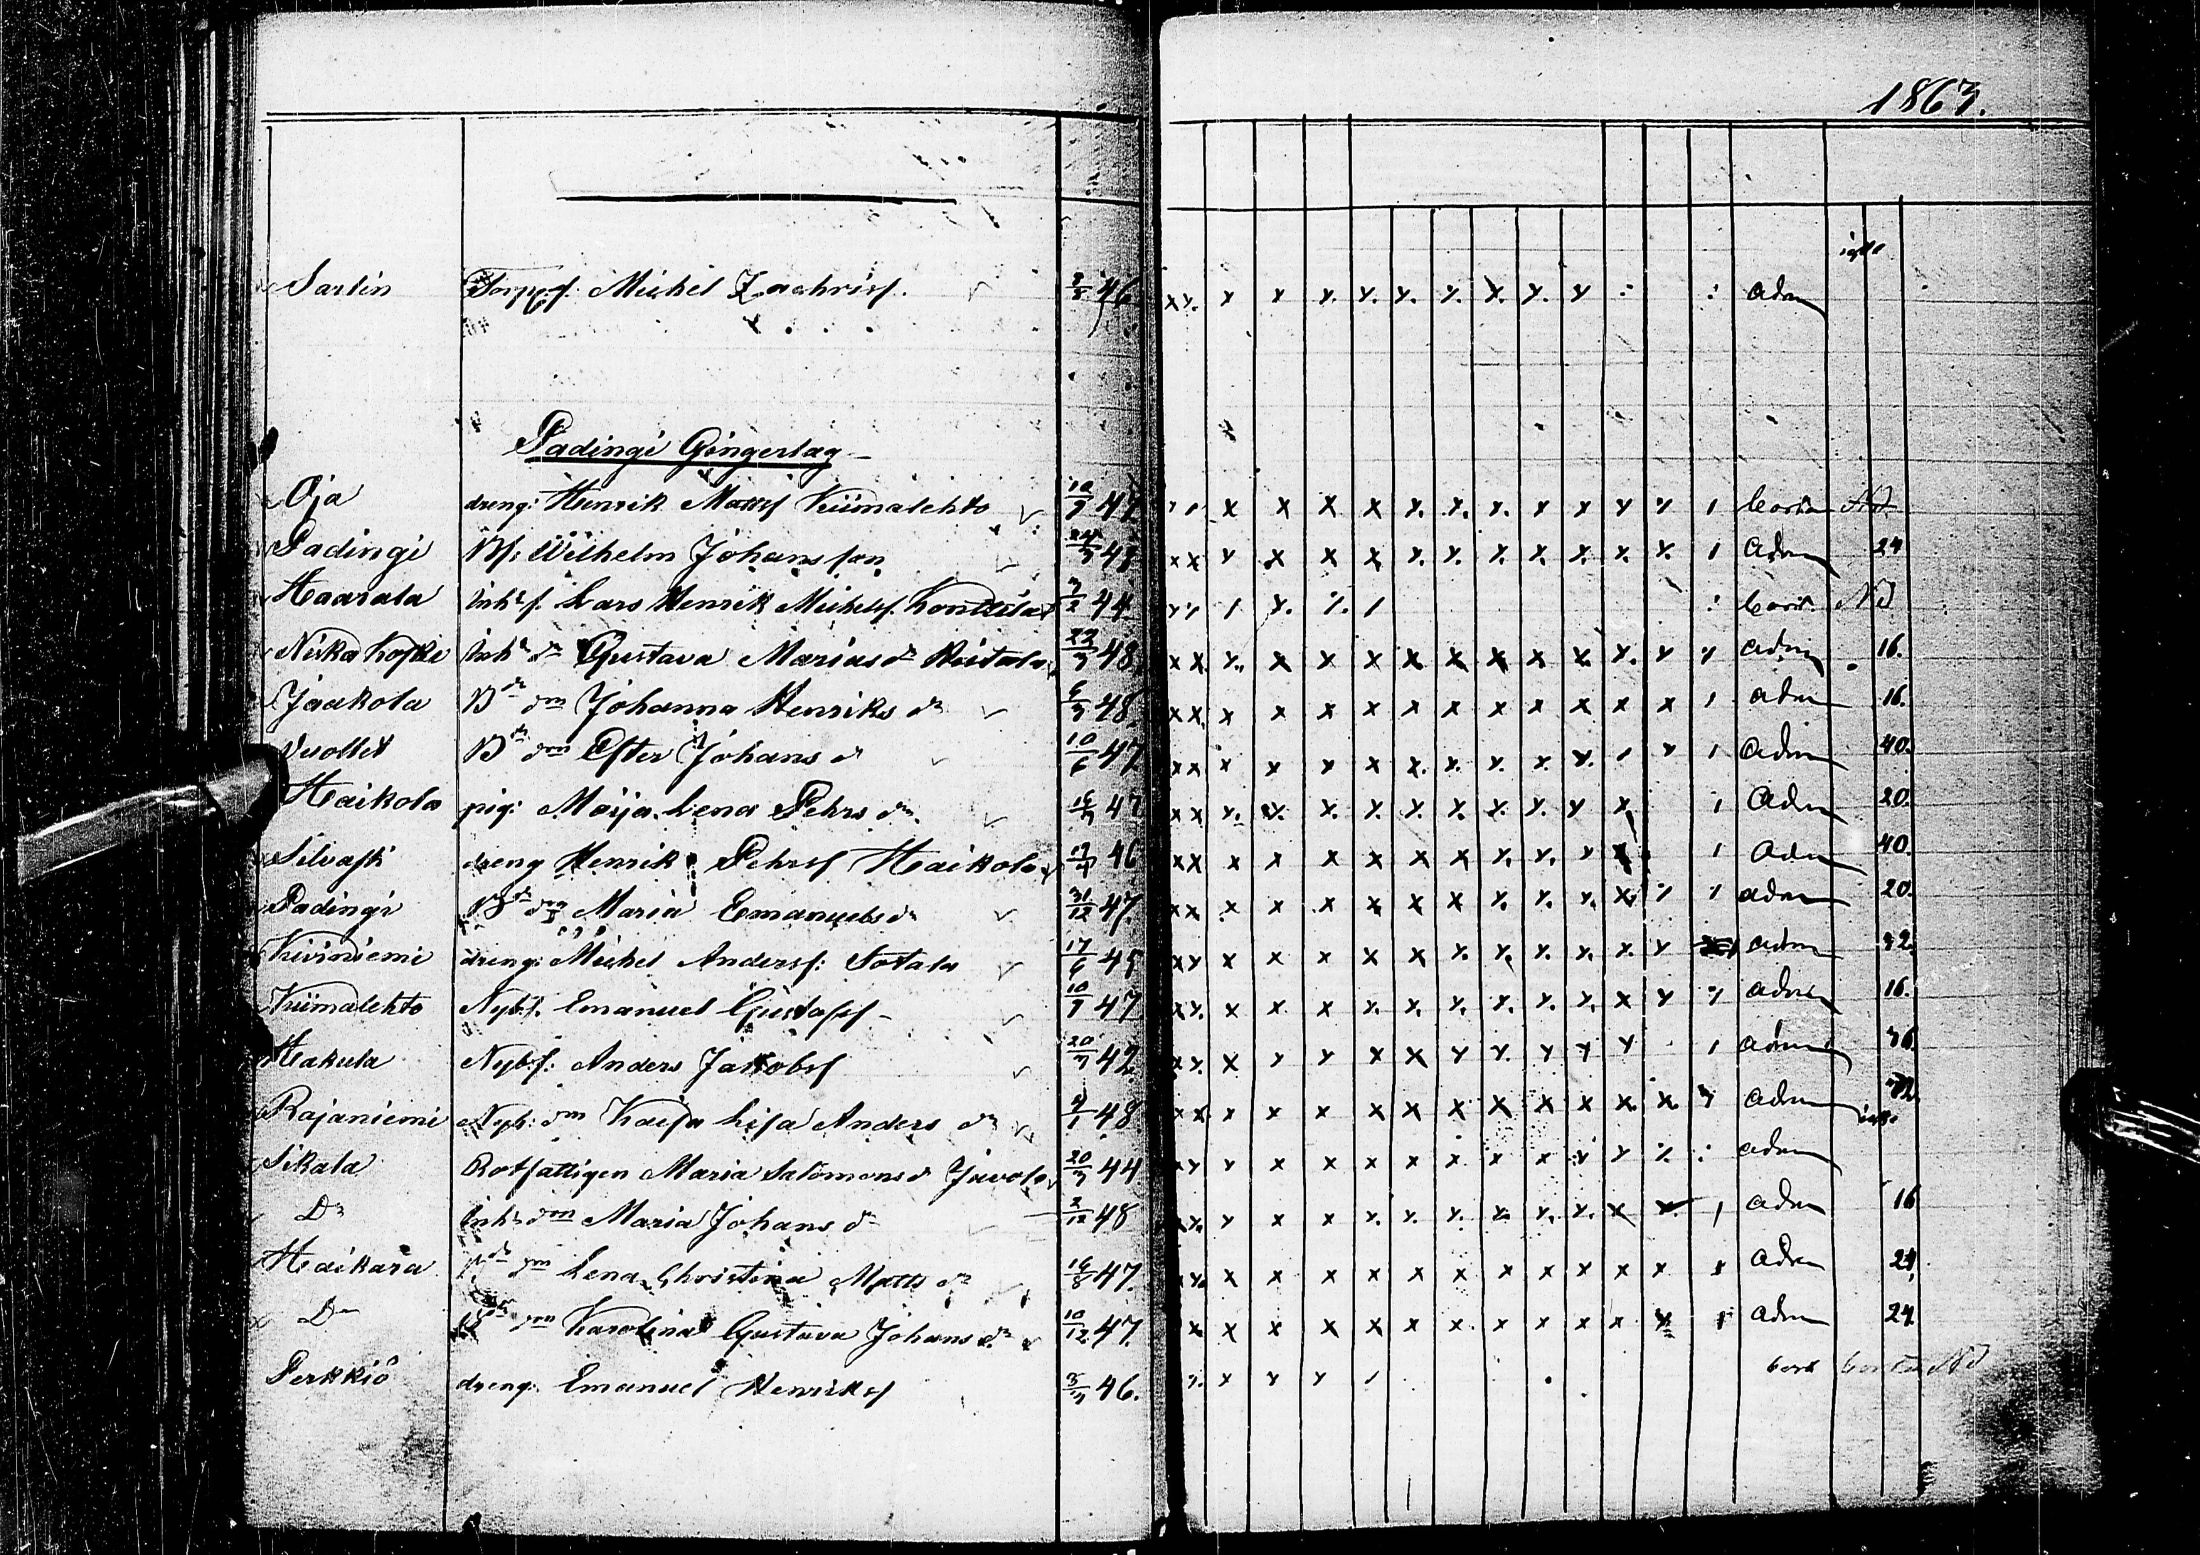 1863.
Sarlin Michel Zachriss. 46 xx. x x x. x. x. x. x. x. x : : adm
Padingi Gingerlag
Oja dreng: Henrik Matts Kiimalehto 10/9 47 x x x x x. x. x. x x x 1 borta Nd
Padingi Bs: Wilhelm Johansson 24/9 48 xx x x x x x. x. x. x. x. x. x. 1 adm 24
Haarala Inhs. Lars Henrik Michels. Konttila 3/2 44 1 x. 1 : bort. Nd
Niska koski Inhs dr Gustava Marias dr 22/9 48 xx x. x x x x x x x x. x. x adm 16.
Jaakola B dr dm Johanna Henriks dr 6/9 48 xx x x x x x x x x x x x 1 adm 16.
Vuollet B dr dm Ester Johans d 10/6 47 xx x x x x x. x. x. x. x. 1 x 1 adm 40.
Haikola pig: Maija Lena Pehrs dr. 47 xx x. x. x. x. x. x. x. x. x x 1 adm 20.
Silvasti dreng Henrik Pehrs Haikola 46 xx x x x x x x x. x. x 1 adm 40.
Padingi B dr dm Maria Emanuels dr 31/12 47. xx x x x x x x x. x. x. x. adm 20.
Kiviniemi dreng: Michel Anders: Sotala 17/6 45 xx x x x x x x. x. x. x. x. x adm
Kiimalehto Nybs. Emanuel Gustafss 10/9 47 xx. x x x x. x. x. x. x. x. x x adm 16.
Hakula Nybs: Anders Jakobs 20/9 42. xx. x x x x x x x. x x x 1 adm
Rajaniemi Nyb: dm Kaisa Lisa Anders dr 48 xx x x x x x x x x x x. x. adm
Sikala Rotfattigen Maria Salomons d Juvola 20/9 44 xx x x x x x x x x x x : adm
Dr Inhs dm Maria Johans dr 2/12 48 xx. x x x x. x. x. x. x. x. x x 1 adm 16
Haikara dm Lena Christina Matts dr 16/8 47. xx. x x x x x x x x x x x adm 24.
Dr dm Karolina Gustava Johans dr. 10/12 47. x x x x x x x x x x x x adm 24.
Perkkiö dreng. Emanuel Henriks 46. x x x 1 bort borta Nd